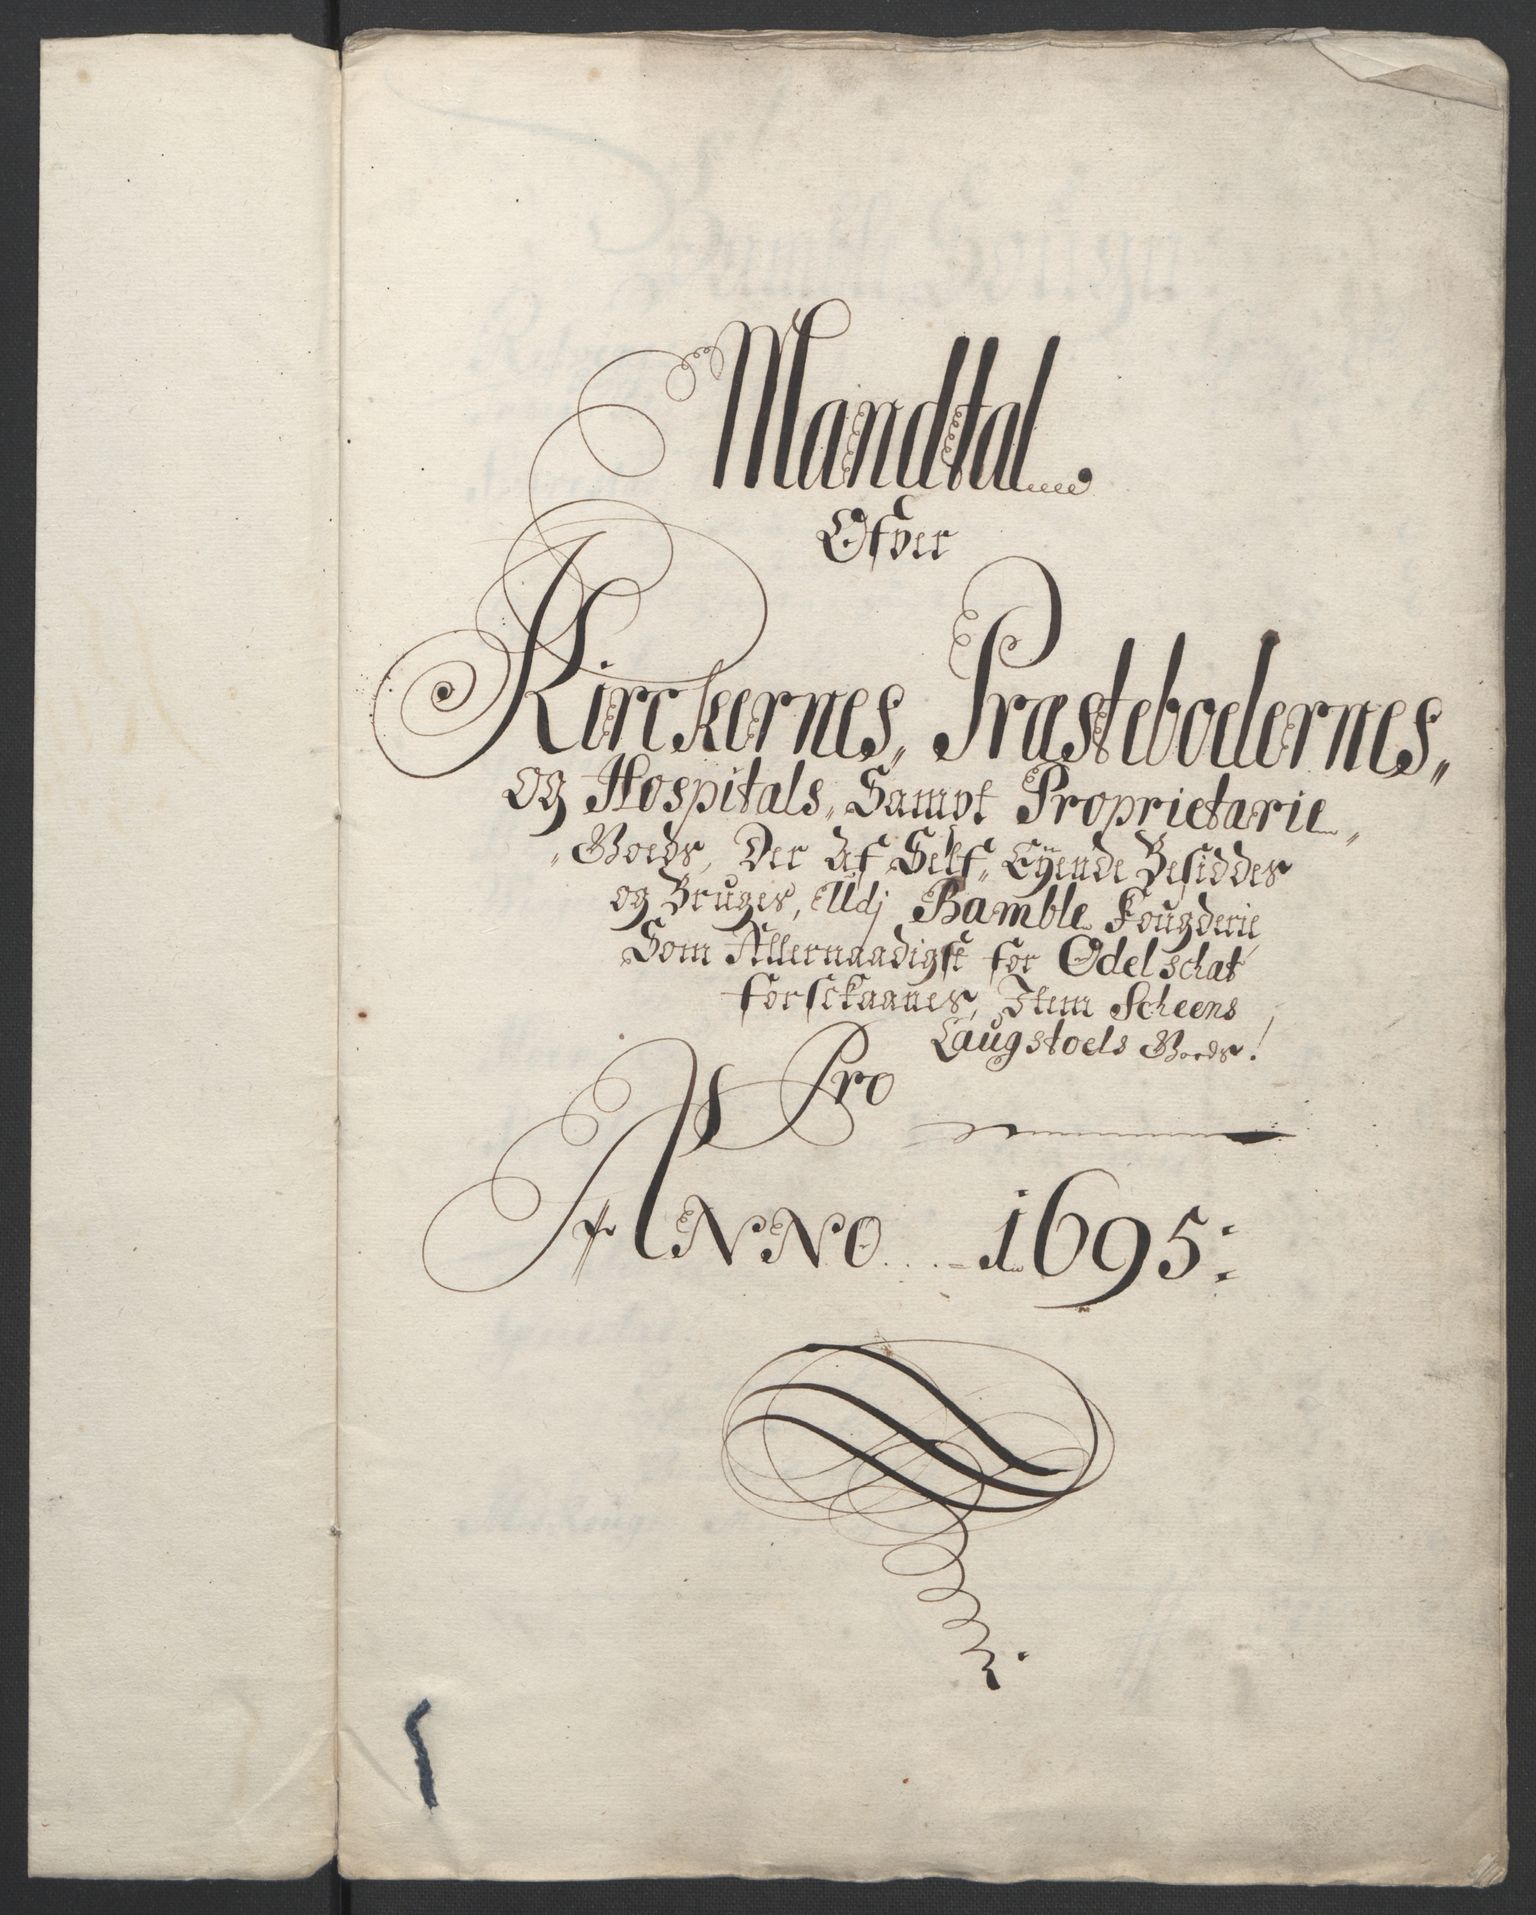 Mandtal
Ofver
Kirckernes, Præstebodernes,
og Hospitals, Sampt Proprietarie
Goeds, Der Af Self, Eÿende Besiddes
og Bruges, Udj Bamble Fougderie,
Som Allernaadigst for Odelschat
forsckaanes, Item Scheens
Laugstoels Goeds!
Pro
ANNO 1695: